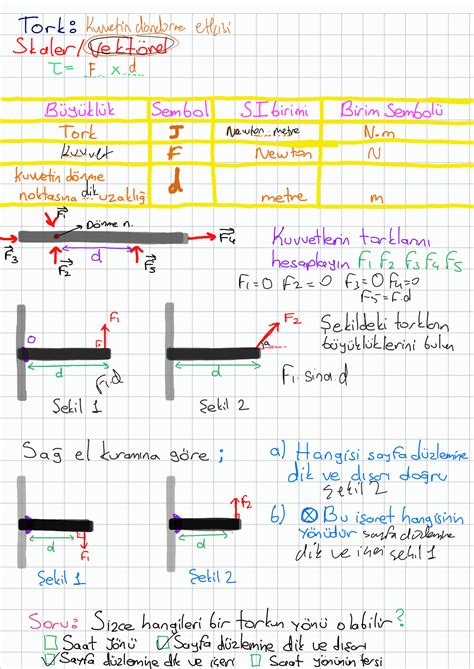 Tork: Kuvvetin döndürme etkisi
Skaler/Vektörel
τ = F x d
Büyüklük Sembol SI birimi Birim Sembolü
Tork Newton.metre N.m
Kuvvet F Newton N
kuvvetin dönme noktasına dik uzaklığı d metre m
F₁ Dönme n.
F₃ F₂ d F₅ F₄
Kuvvetlerin torklarını
hesaplayın F₁ F₂ F₃ F₄ F₅
F₁=0 F₂=0 F₃=0 F₄=0
F₅=F.d
O F₁ F
d
F₁.d
Şekil 1
F₂ a
d
Şekil 2
Şekildeki torkların
büyüklüklerini bulun
F₁.sina.d
Sağ el kuralına göre ;
a) Hangisi sayfa düzlemine
dik ve dışarı doğru
Şekil 2
b) ⊗ Bu işaret hangisinin
yönüdür sayfa düzlemine
dik ve içeri şekil 1
d F₁
Şekil 1
F₂ d
Şekil 2
Soru: Sizce hangileri bir torkun yönü olabilir?
☐ Saat yönü ☑ Sayfa düzlemine dik ve dışarı
☑ Sayfa düzlemine dik ve içeri ☐ Saat yönünün tersi